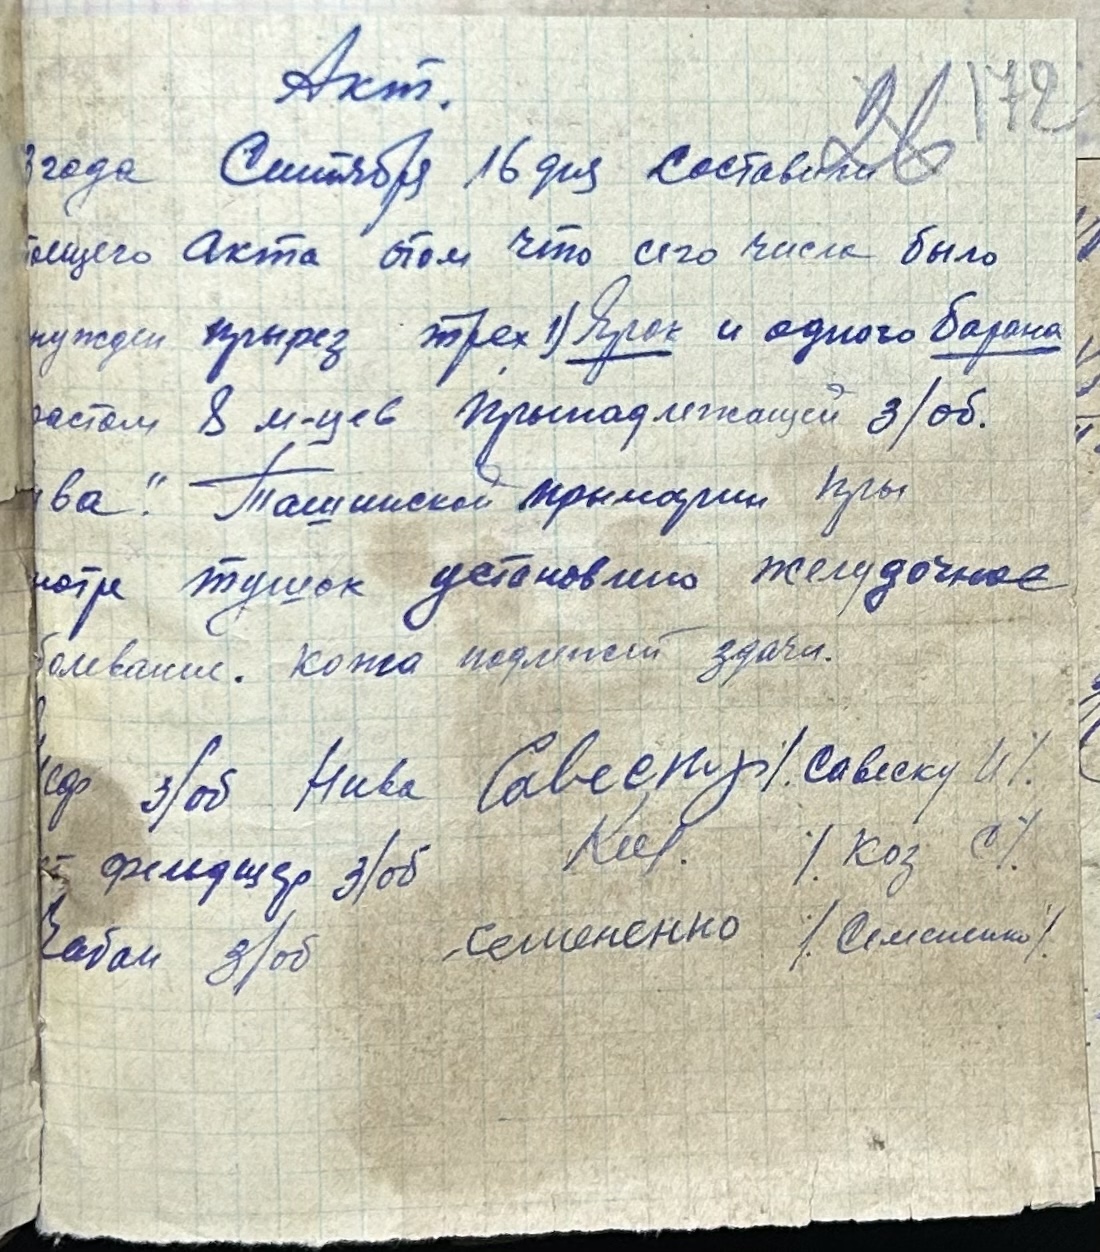 Акт.
26 172
3 года Сентября 16 дня составили
тоящего Акта отом что сего числа было
нужден прырез трех 1) Ярок и одного Барана
растом 8 м-цев Прынадлежащей з/об.
ива". Ташинской прымарии Пры
мотре тушок установлино желудочное
болевание. Кожа подлежит здачи.
з/об Нива Савеску /. Савеску И /.
ет фельдшер з/об /. Коз С /.
Чабан з/об Семененно /. Семененко /.